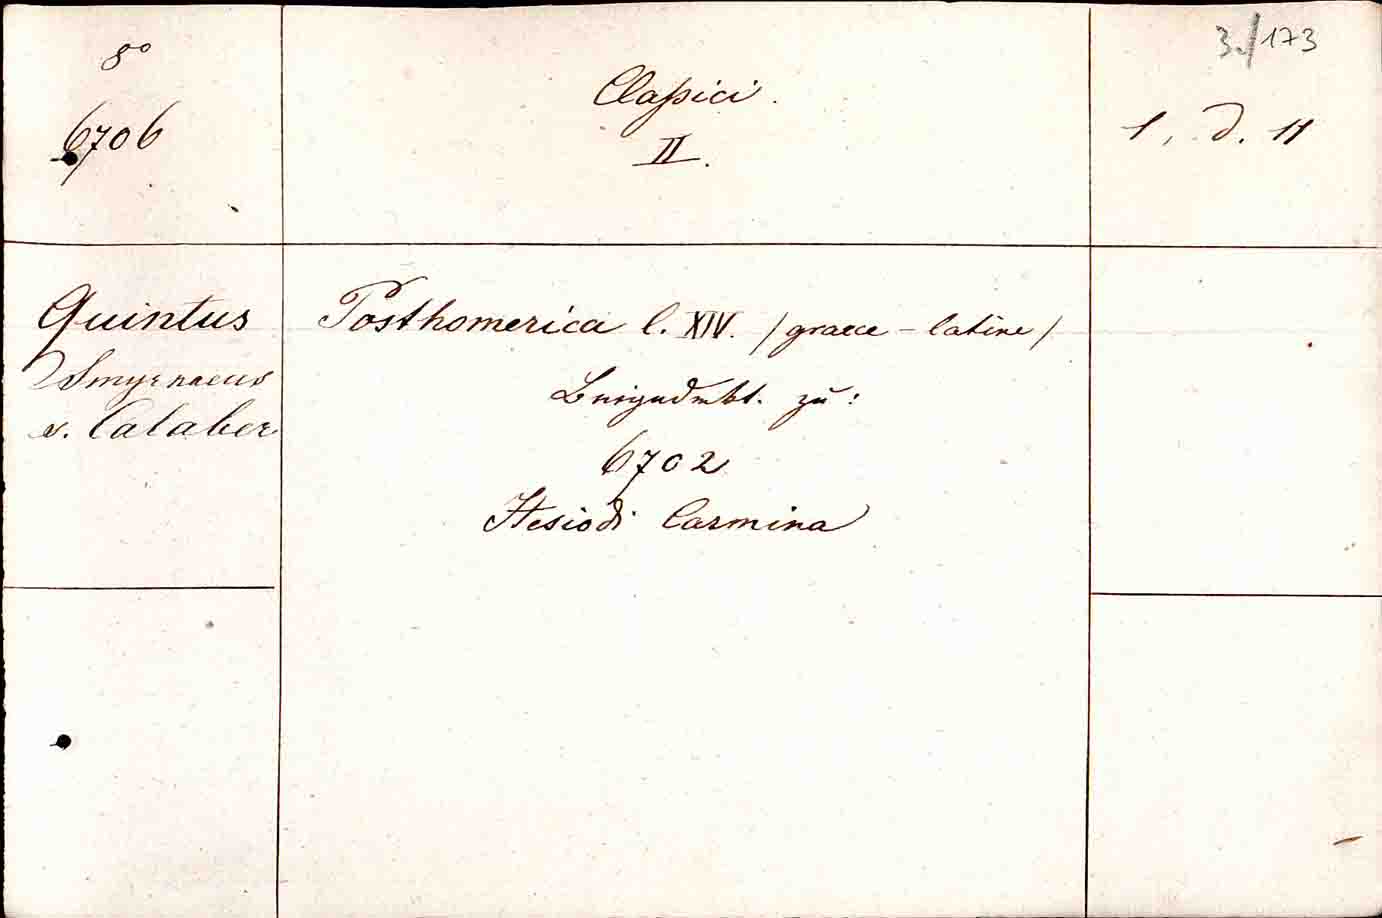 8°
6706
Classici.
II.
3./173
1, d. 11
Quintus
Smyrnaeus
v. Calaber
Posthomerica l. XIV. /graece - latine/
zu:
6702
Hesiodi Carmina